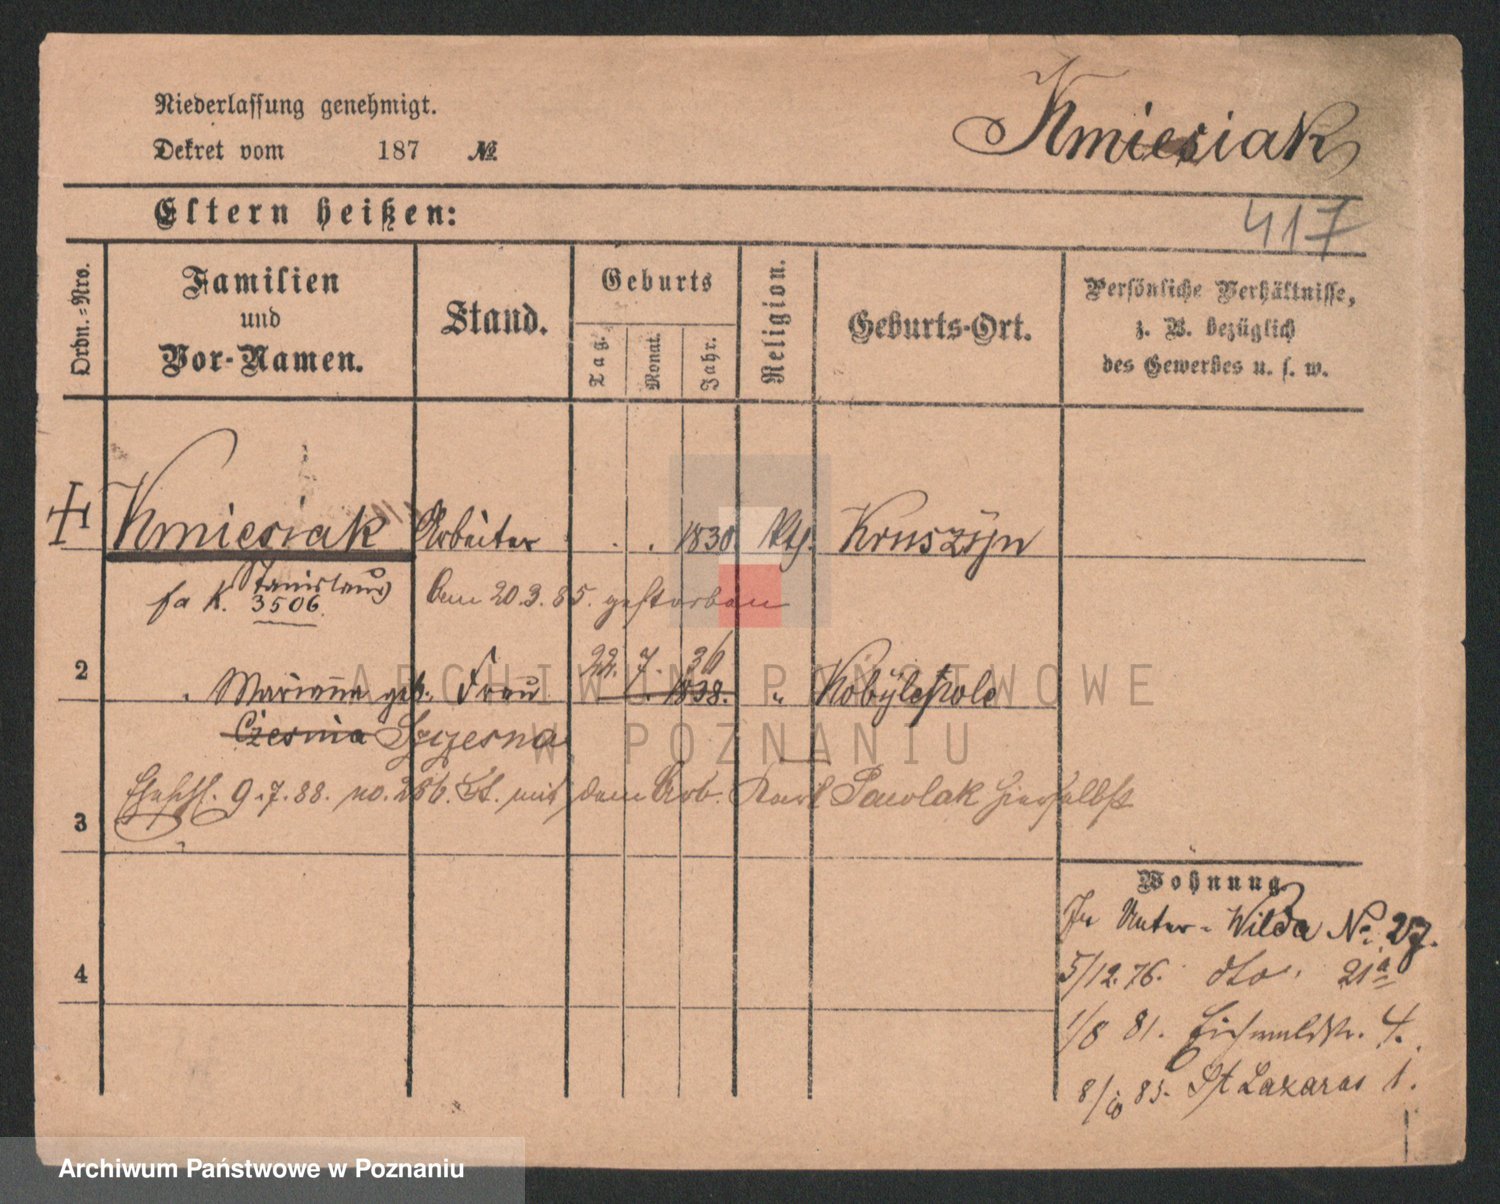 Niederlassung genehmigt.
Dekret vom 187 №
Kmiesiak
417
Eltern heißen:
Ordn.-Nro.
Familien
und
Vor-Namen.
Stand.
Geburts
Tag.
Monat.
Jahr.
Religion.
Geburts-Ort.
Persönliche Verhältnisse,
z. B. bezüglich
des Gewerbes u. s. w.
Kmiesiak Arbeiter . . 1830. Kth. Kruszyn
Stanislaus
fa K. 3506. Am 20.3.85. gestorben
22. 7. 36
2 " Marianna geb. Frau 1838. " Kobylepole
Czesnia Szczesna
3 Eheschl. 9.7.88. no. 286. St. mit dem Arb. Karl Pawlak hierselbst
4
Wohnung
In Unter-Wilda No. 27.
5/12.76. dto. 21a
1/8 81. Eichwaldstr. 4.
8/10 85. St Lazarus 1.
ARCHIWUM PAŃSTWOWE
W POZNANIU
Archiwum Państwowe w Poznaniu